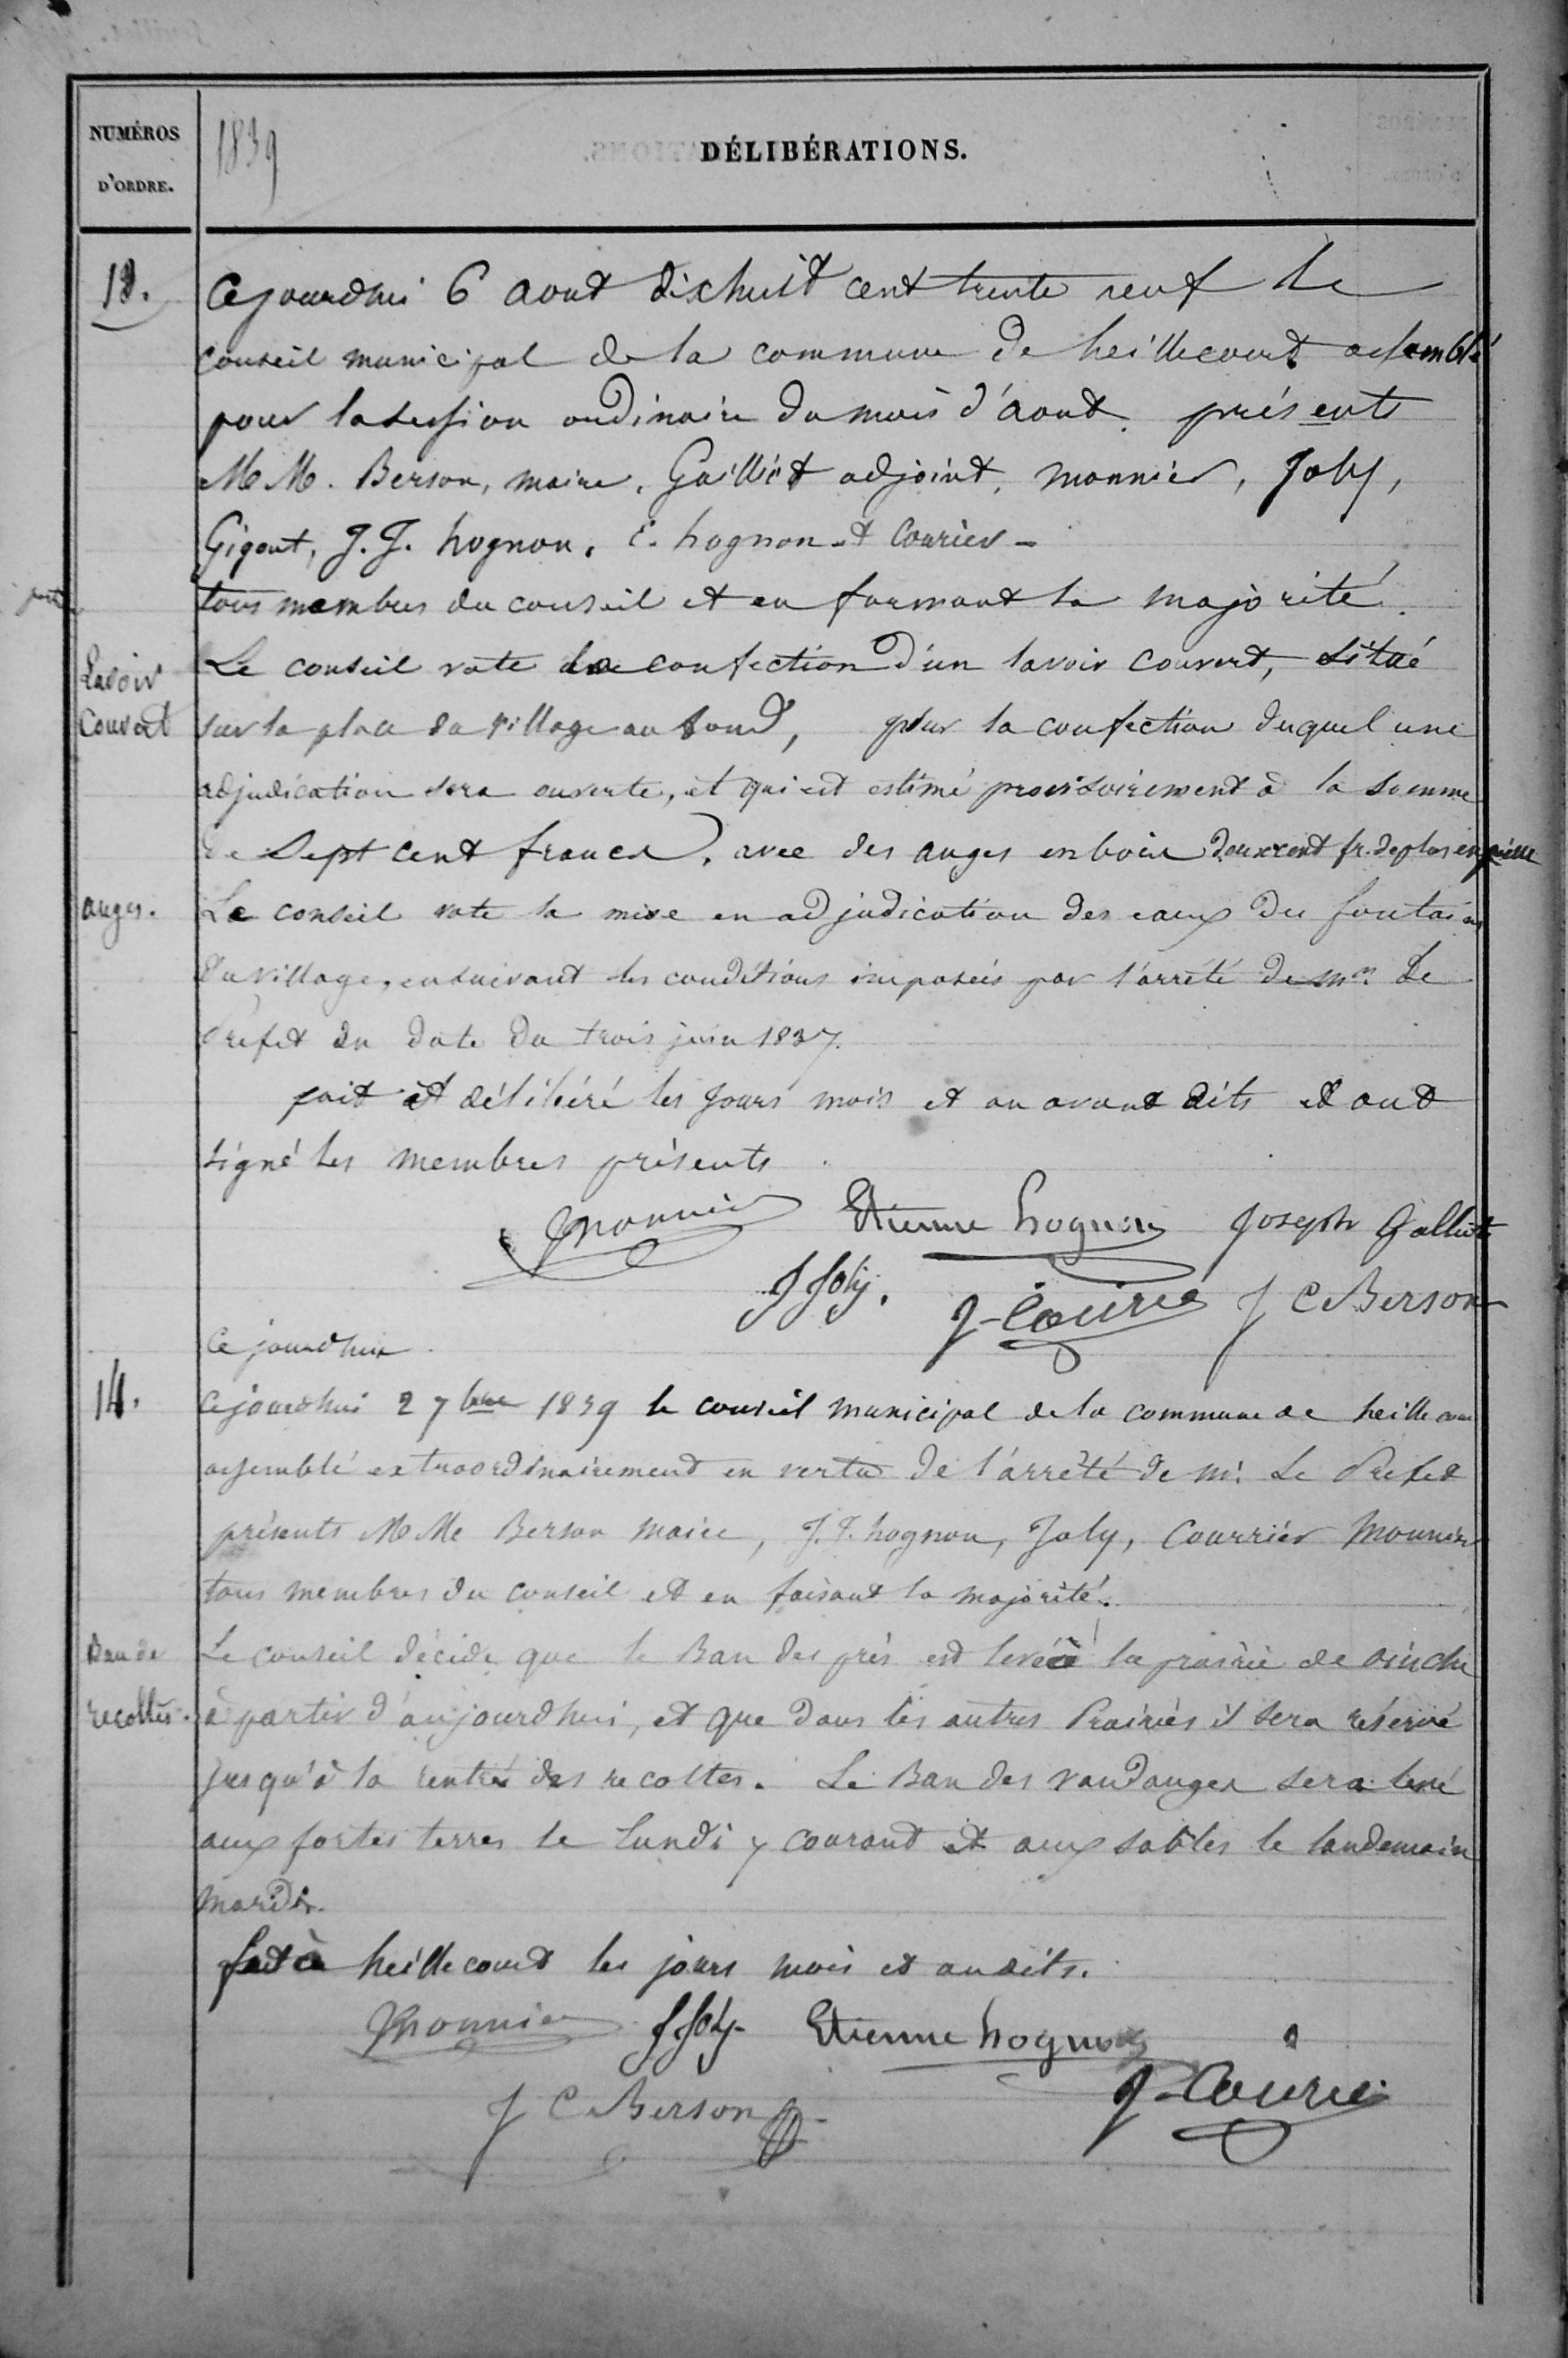 NUMÉROS
D'ORDRE.
1839
DÉLIBÉRATIONS.
18.
Cejourdhui 6 aout dixhuit cent trente neuf le
conseil municipal de la commune de heillecourt assemblé
pour la session ordinaire du mois d'aout. présents
MM. Berson, maire, Gailliot adjoint, monnier, Joly,
Gigout, J. J. hognon, E. hognon et Courier –
tous membres du conseil et en formant la majorité.
Lavoir
Couvert
Le conseil vote la confection d'un lavoir couvert, situé
sur la place du village au fond, pour la confection duquel une
adjudication sera ouverte, et qui est estimé provisoirement à la somme
de Sept cent francs, avec des auges en bois deux cent fr. de plus en pierre
auges.
Le conseil vote la mise en adjudication des eaux des fontaines
du village, en suivant les conditions imposées par l'arrêté de mr. Le
Préfet en date du trois juin 1837.
fait et délibéré les jours mois et an avant dits et ont
signé les membres présents
Monnier Etienne hognon Joseph Galliot
J Joly. J - Courié J C Berson
Ce jourdhui
14.
Cejourdhui 2 7bre 1839 le conseil municipal de la commune de heillecour
assemblé extraordinairement en vertu de l'arrêté de mr. Le Prefet
présents MM Berson maire, J. J. hognon, Joly, Courrier Monnier
tous membres du conseil et en faisant la majorité.
Ban de
recoltes.
Le conseil décide que le Ban des prés est levé à la prairie de
à partir d'aujourdhui, et que dans les autres Prairies il sera réservé
jusqu'à la rentrée des recoltes. Le Ban des vandanges sera levé
aux fortes terres le lundi 7 courant et aux sables le landemain
mardi.
fait à heillecourt les jours mois et an dits.
Monnier J Joly - Etienne hognon
J C Berson J - Courié